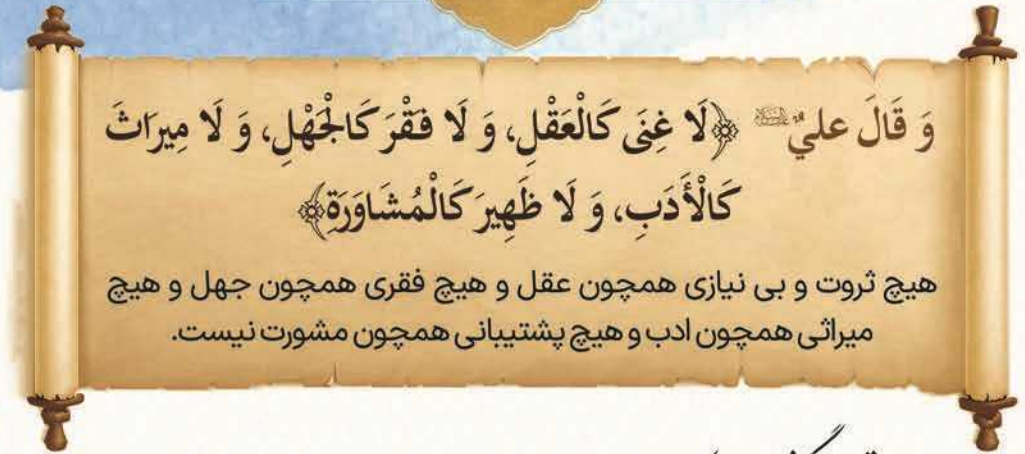 وَ قَالَ عليٌ ﴿لَا غِنَى كَالْعَقْلِ، وَ لَا فَقْرَ كَالْجَهْلِ، وَ لَا مِيرَاثَ
كَالْأَدَبِ، وَ لَا ظَهِيرَ كَالْمُشَاوَرَةِ﴾
هیچ ثروت و بی نیازی همچون عقل و هیچ فقری همچون جهل و هیچ
میراثی همچون ادب و هیچ پشتیبانی همچون مشورت نیست.